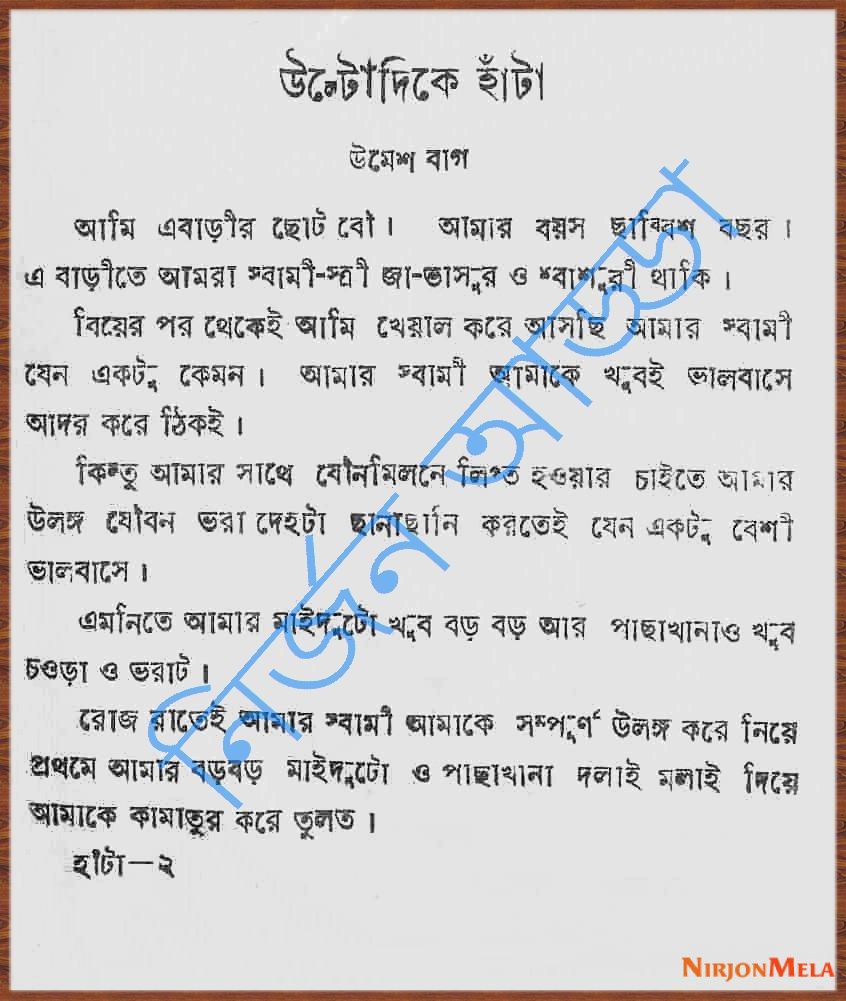 উল্টোদিকে হাঁটা
উমেশ বাগ
আমি এবাড়ীর ছোট বৌ। আমার বয়স ছাব্বিশ বছর।
এ বাড়ীতে আমরা স্বামী-স্ত্রী জা-ভাসুর ও শ্বাশুরী থাকি।
বিয়ের পর থেকেই আমি খেয়াল করে আসছি আমার স্বামী
যেন একটু কেমন। আমার স্বামী আমাকে খুবই ভালবাসে
আদর করে ঠিকই।
কিন্তু আমার সাথে যৌনমিলনে লিপ্ত হওয়ার চাইতে আমার
উলঙ্গ যৌবন ভরা দেহটা ছানাছানি করতেই যেন একটু বেশী
ভালবাসে।
এমনিতে আমার মাইদুটো খুব বড় বড় আর পাছাখানাও খুব
চওড়া ও ভরাট।
রোজ রাতেই আমার স্বামী আমাকে সম্পূর্ণ উলঙ্গ করে নিয়ে
প্রথমে আমার বড়বড় মাইদুটো ও পাছাখানা দলাই মলাই দিয়ে
আমাকে কামাতুর করে তুলত।
হাঁটা—২
নির্জন আড্ডা
NIRJONMELA